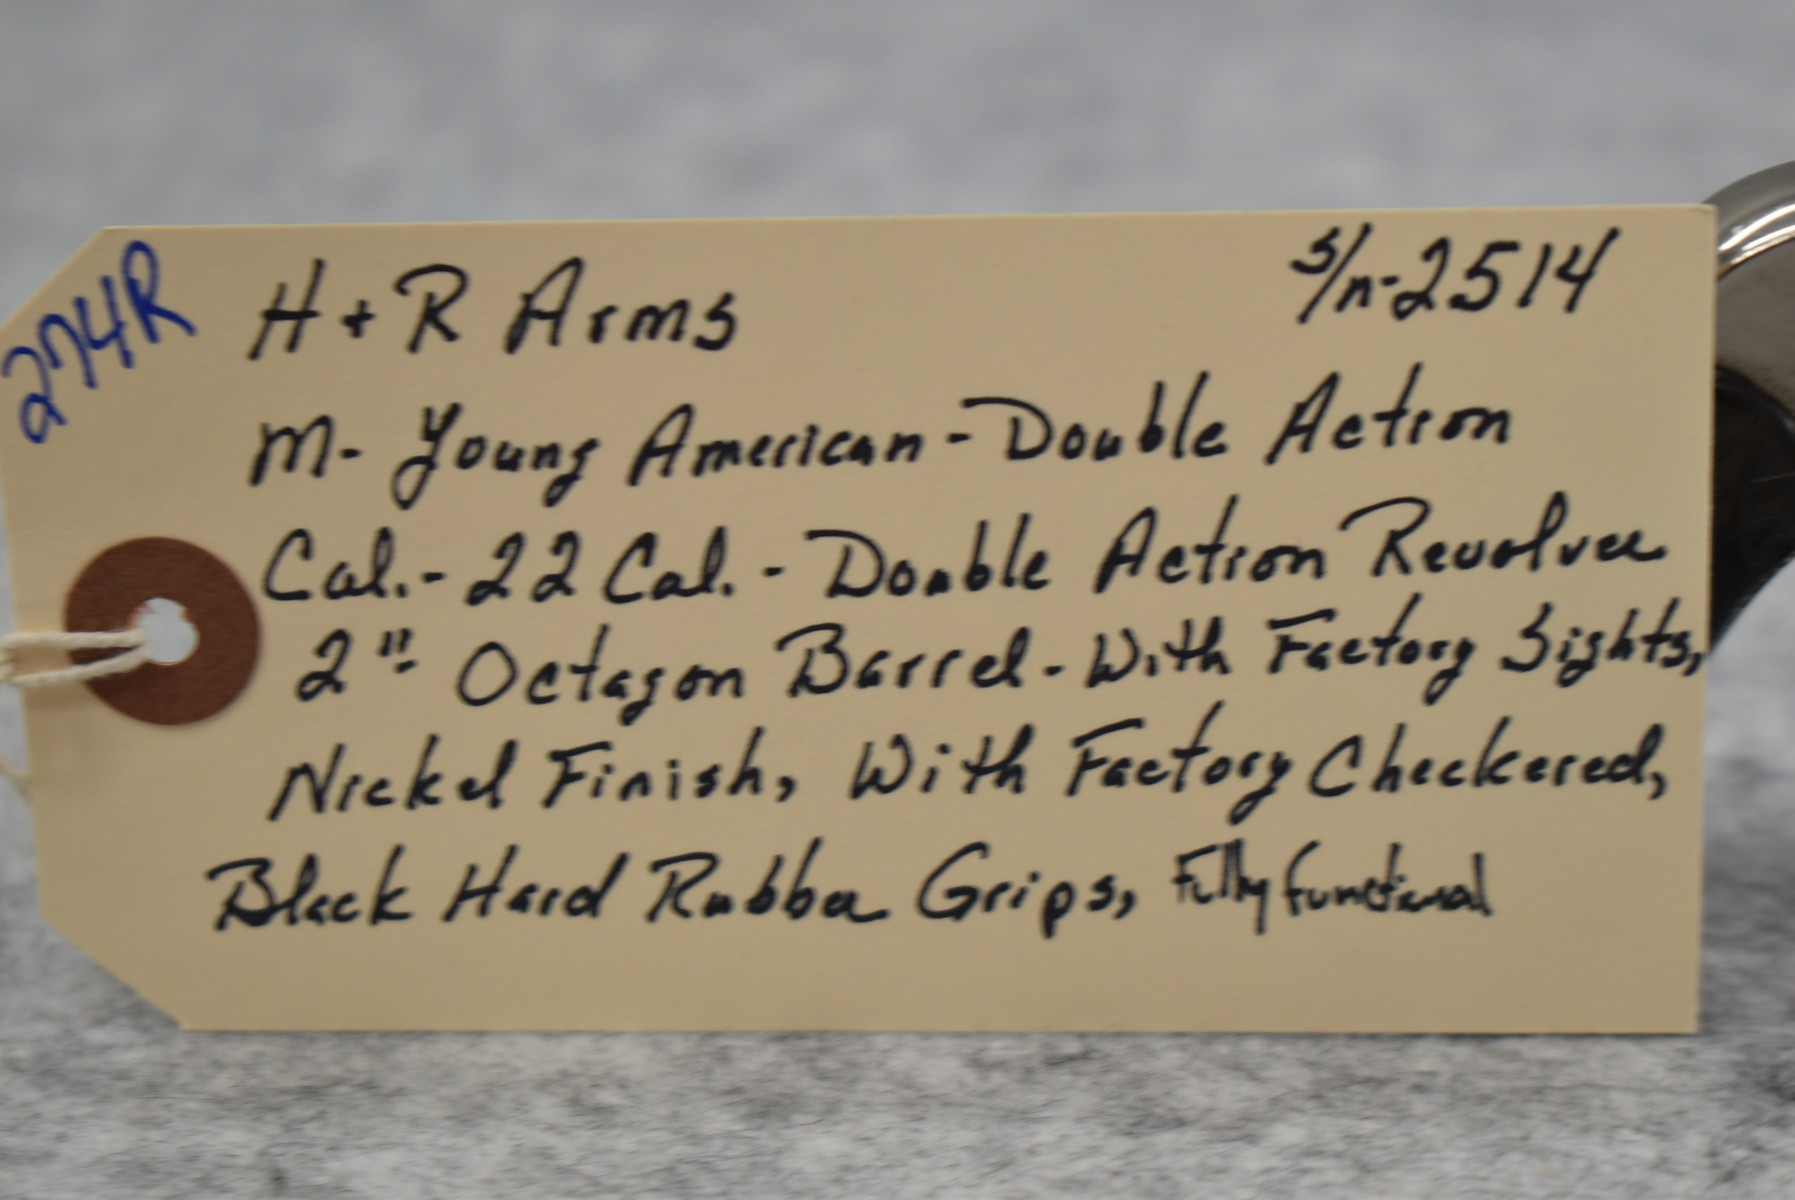 274R
H + R Arms S/n-2514
M- Young American - Double Action
Cal.- 22 Cal. - Double Action Revolver
2" Octagon Barrel - With Factory Sights,
Nickel Finish, With Factory Checkered,
Black Hard Rubber Grips, Fully functional